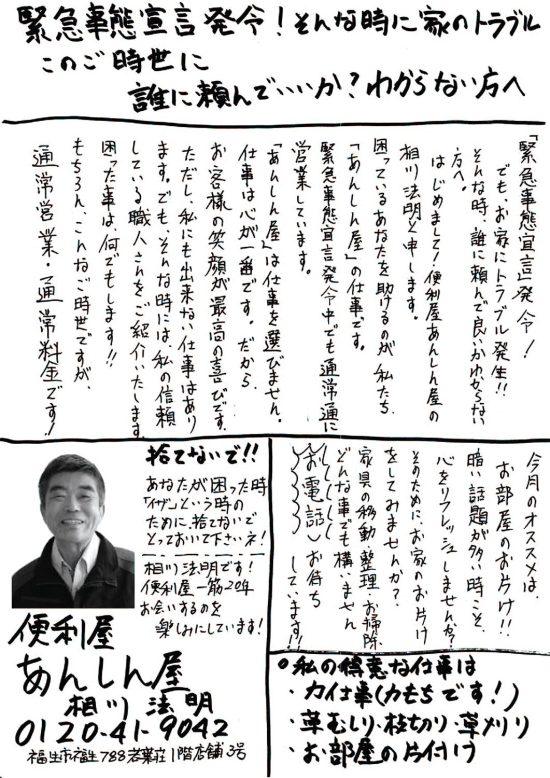 緊急事態宣言発令!そんな時に家のトラブル
このご時世に
誰に頼んでいいか?わからない方へ
「緊急事態宣言」発令!
でも、お家にトラブル発生!!
そんな時、誰に頼んで良いかわからない
方へ。
はじめまして!便利屋あんしん屋の
相川法明と申します。
困っているあなたを助けるのが私たち、
「あんしん屋」の仕事です。
緊急事態宣言発令中でも通常通に
営業しています。
「あんしん屋」は仕事を選びません。
仕事は心が一番です。だから、
お客様の笑顔が最高の喜びです。
ただし、私にも出来ない仕事はあり
ます。でも、そんな時には、私の信頼
している職人さんをご紹介いたします。
困った事は、何でもします!!
もちろん、こんなご時世ですが、
通常営業・通常料金です!
今月のオススメは、
お部屋のお片け!!
暗い話題が多い時こそ、
心をリフレッシュしませんか?
そのために、お家のお片け
をしてみませんか?
家具の移動、整理、お掃除
どんな事でも構いません
お電話お待ち
しています!!
捨てないで!!
あなたが困った時
「イザ」という時の
ために、捨てないで
とっておいて下さいネ!
相川法明です!
便利屋一筋20年
お会いするのを
楽しみにしています!
便利屋
あんしん屋
相川法明
0120-41-9042
福生市福生788若葉荘1階店舗3号
○私の得意な仕事は
・力仕事(力もちです!)
・草むしり・枝切り・草メリリ
・お部屋の片付け